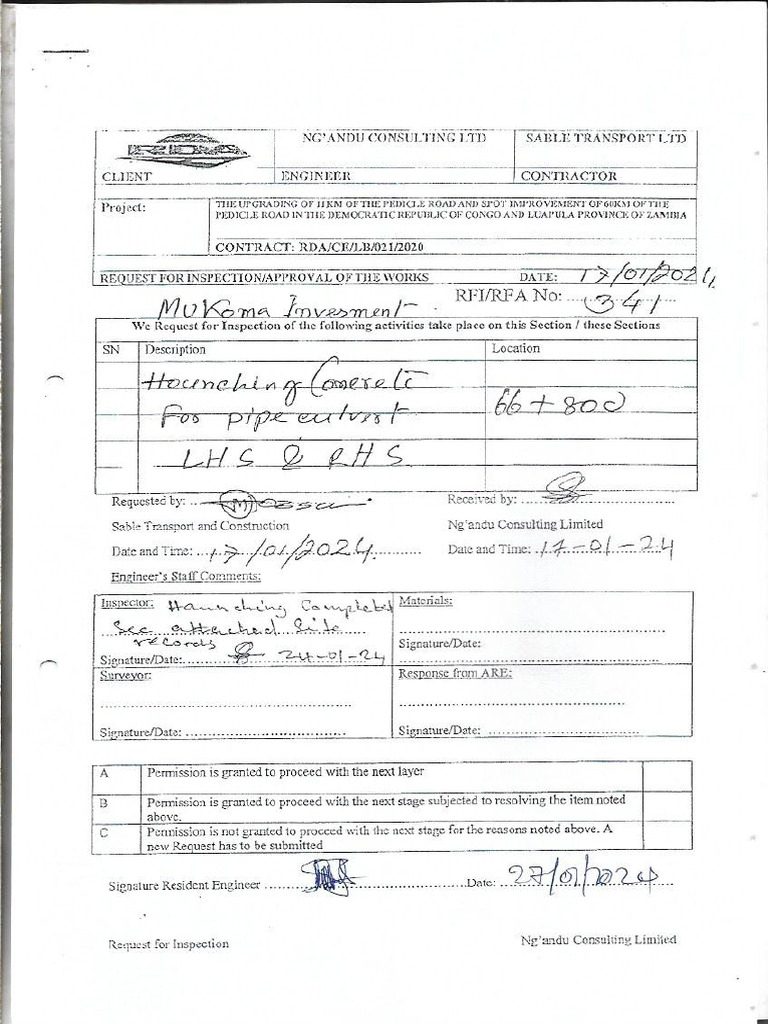 RDA
NG'ANDU CONSULTING LTD
SABLE TRANSPORT LTD
CLIENT
ENGINEER
CONTRACTOR
Project:
THE UPGRADING OF 11KM OF THE PEDICLE ROAD AND SPOT IMPROVEMENT OF 60KM OF THE
PEDICLE ROAD IN THE DEMOCRATIC REPUBLIC OF CONGO AND LUAPULA PROVINCE OF ZAMBIA
CONTRACT: RDA/CE/LB/021/2020
REQUEST FOR INSPECTION/APPROVAL OF THE WORKS DATE: 17/01/2024
RFI/RFA No: 341
MUKoma Invesment
We Request for Inspection of the following activities take place on this Section / these Sections
SN Description Location
Haunching Concrete
For pipe culvert 66+800
LHS & RHS
Requested by: Received by:
Sable Transport and Construction Ng'andu Consulting Limited
Date and Time: 17/01/2024 Date and Time: 17-01-24
Engineer's Staff Comments:
Inspector: Haunching Completed
See attached Site
records
Signature/Date: 24-01-24
Materials:
Signature/Date:
Surveyor:
Signature/Date:
Response from ARE:
Signature/Date:
A Permission is granted to proceed with the next layer
B Permission is granted to proceed with the next stage subjected to resolving the item noted
above.
C Permission is not granted to proceed with the next stage for the reasons noted above. A
new Request has to be submitted
Signature Resident Engineer Date: 27/01/2024
Request for Inspection Ng'andu Consulting Limited